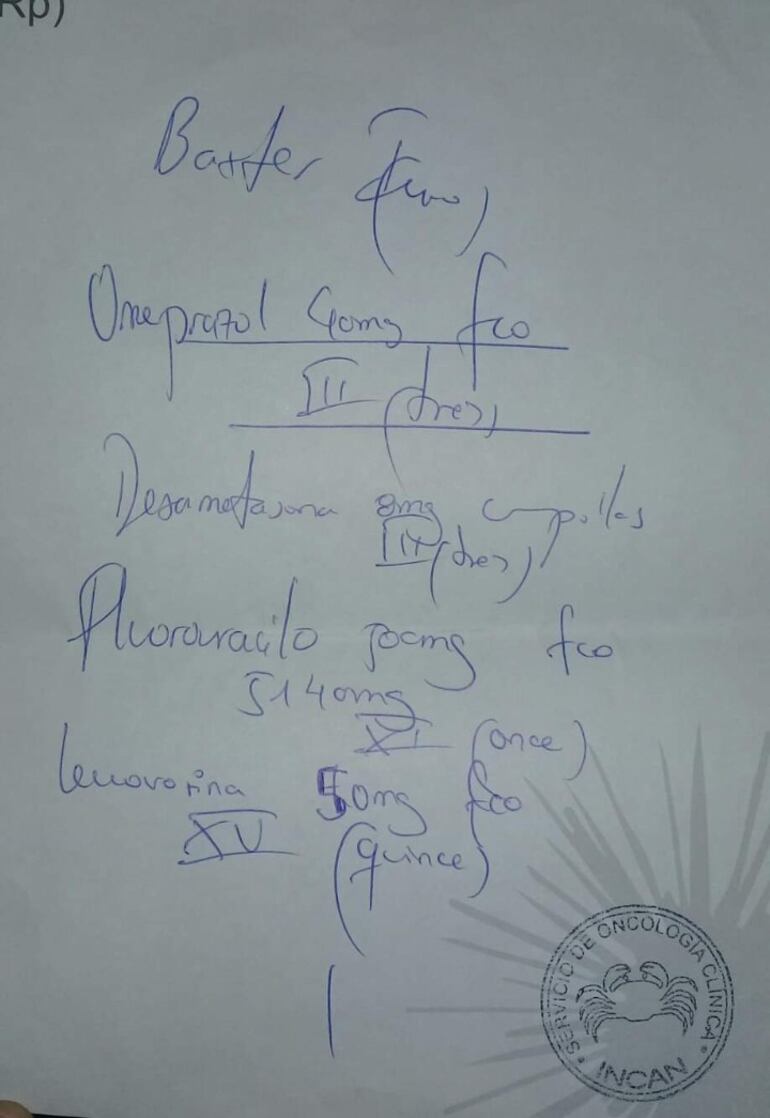 Rp)
Baxter I (uno)
Omeprazol 40mg fco
III (tres)
Dexametasona 8mg ampollas
III (tres)
Fluorouracilo 500mg fco
5140mg
XI (once)
Leucovorina 50mg fco
XV (quince)
SERVICIO DE ONCOLOGÍA CLÍNICA
INCAN